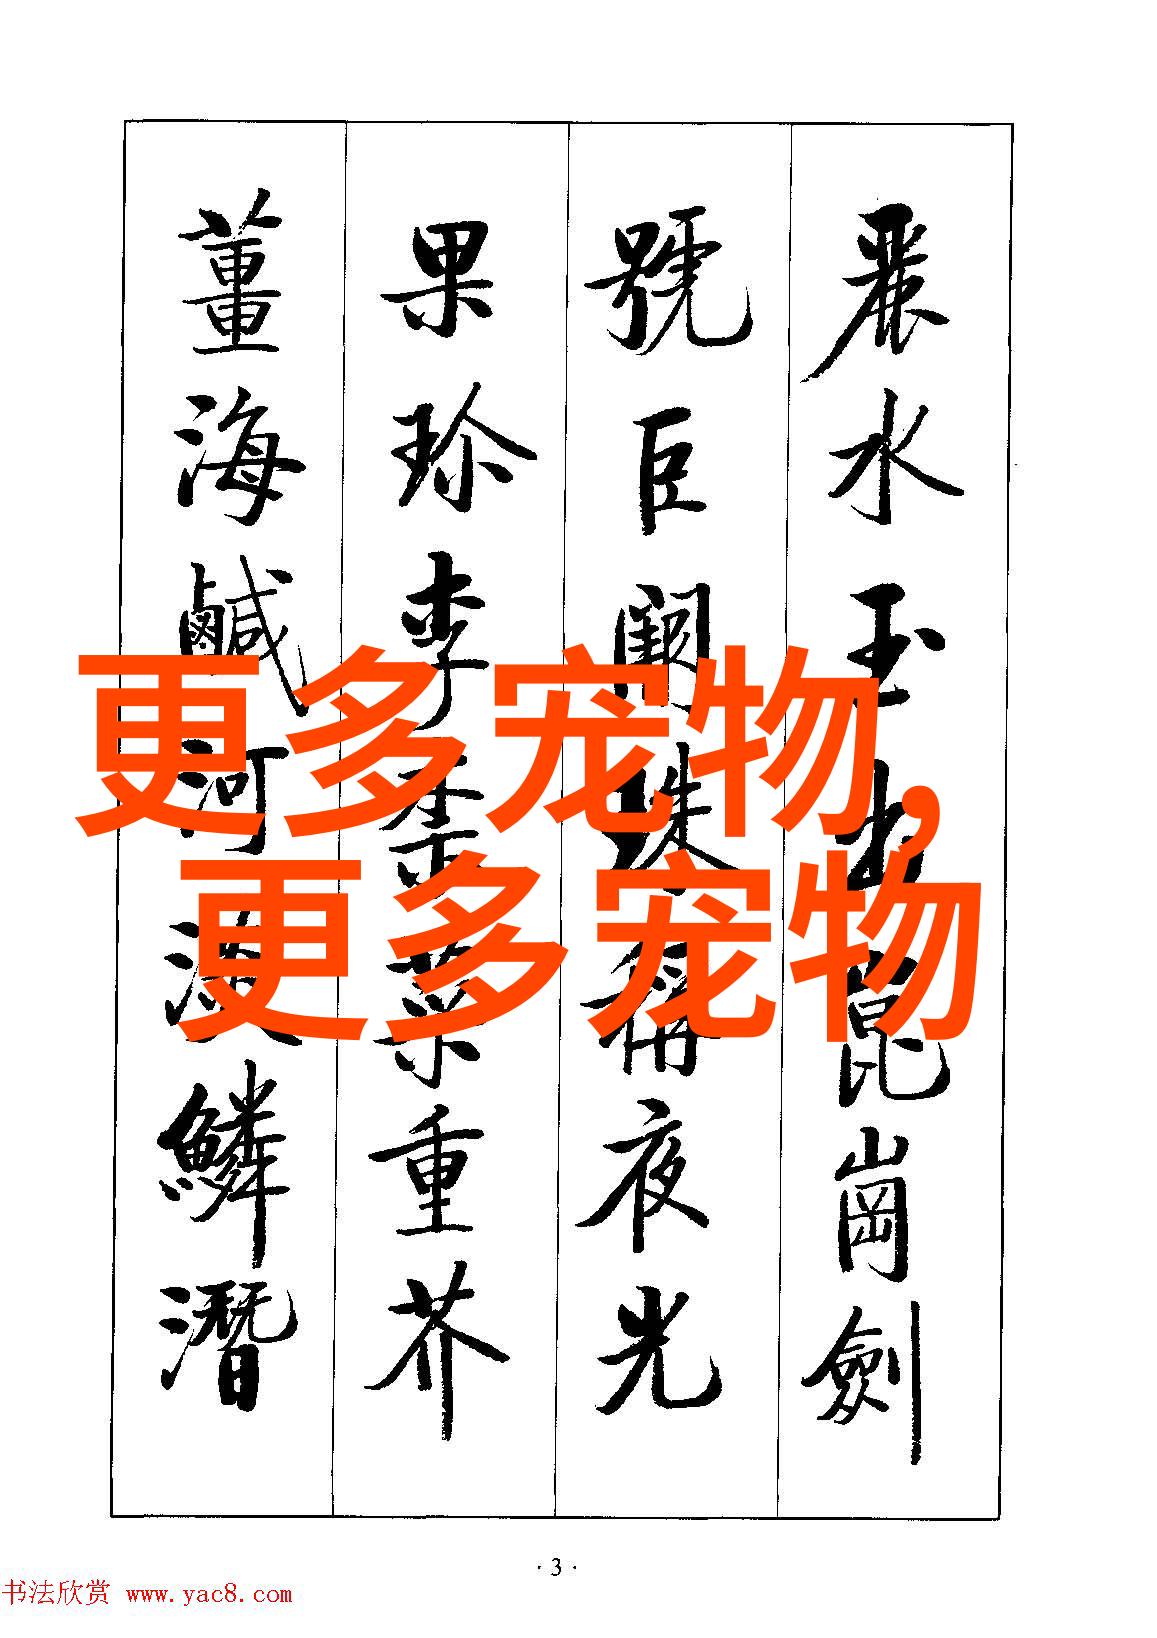 麗水玉出崑崗劍
號巨闕珠稱夜光
果珍李柰菜重芥
薑海鹹河淡鱗潛
更多宠物,
更多宠物
·3·
书法欣赏 www.yac8.com